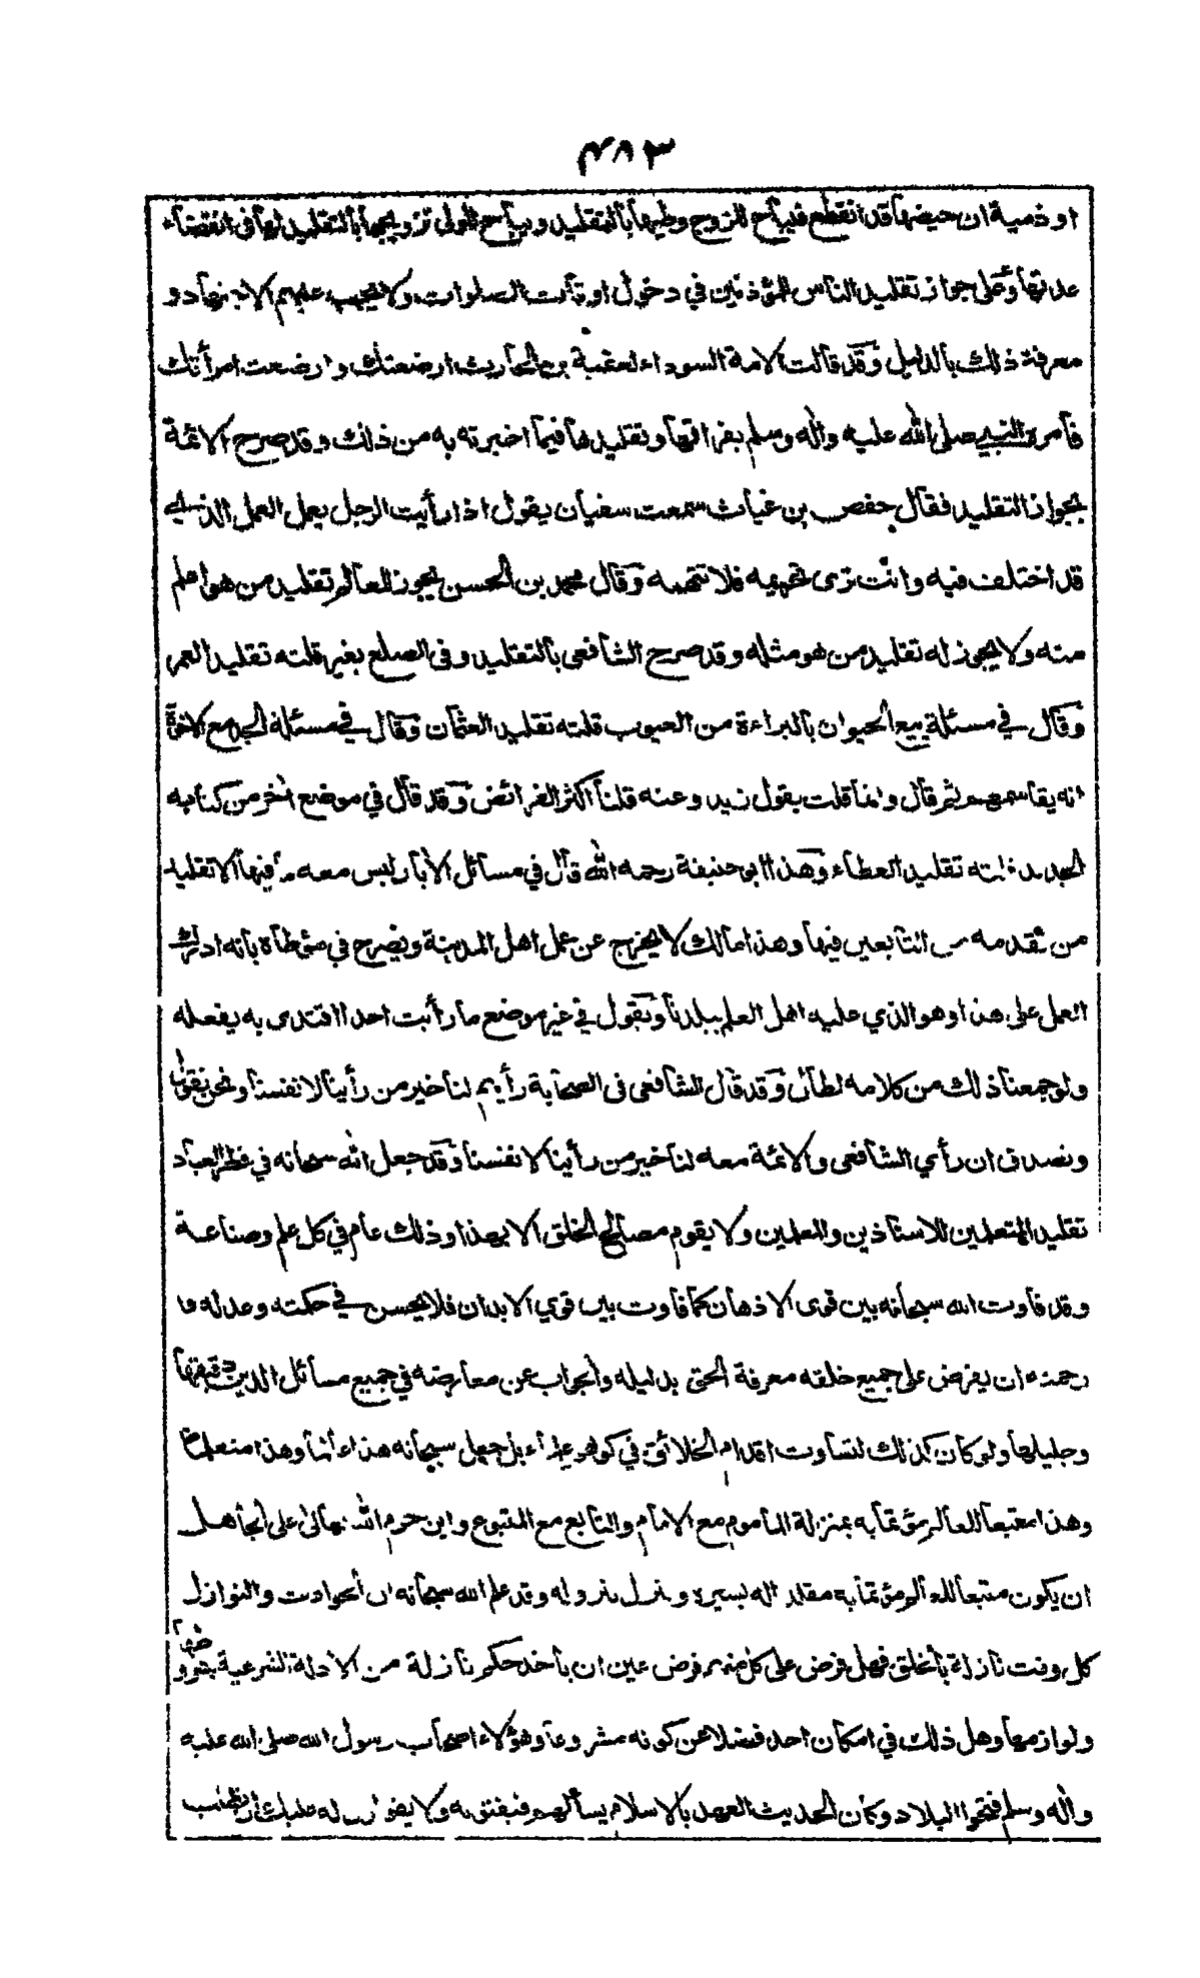 ٤٨٣
او ذمية ان حيضها قد انقطع فيباح للزوج وطيها بالتقليد ويباح للولى تزويجها بالتقليد لها فى انقضاء
عدتها وعلى جواز تقليد الناس للمؤذنين في دخول اوقات الصلوات ولا يجب عليهم الاجتهاد و
معرفة ذلك بالدليل وقد قالت الامة السوداء لعقبة بن الحارث ارضعتك وارضعت امرأتك
فأمره النبي صلى الله عليه واله وسلم بفراقها وتقليدها فيما اخبرته به من ذلك وقد صرح الائمة
بجواز التقليد فقال حفص بن غياث سمعت سفيان يقول اذا رأيت الرجل يعمل العمل الذي
قد اختلف فيه وانت ترى تحريمه فلا تنهه وقال محمد بن الحسن يجوز للعالم تقليد من هو اعلم
منه ولا يجوز له تقليد من هو مثله وقد صرح الشافعى بالتقليد وفى الضلع بعير قلته تقليد العمر
وقال في مسئلة بيع الحيوان بالبراءة من العيوب قلته تقليد العثمان وقال في مسئلة الجد مع الاخوة
انه يقاسمهم ثم قال وانما قلت بقول زيد وعنه قلنا اكثر الفرائض وقد قال في موضع اخر من كتابه
الجديد قلته تقليد العطاء وهذا ابو حنيفة رحمه الله قال في مسائل الأبار ليس معه فيها الا تقليد
من تقدمه من التابعين فيها وهذا مالك لا يخرج عن عمل اهل المدينة ويصرح في مؤطاه بانه ادرك
العمل على هذا وهو الذي عليه اهل العلم ببلدنا ويقول في غير موضع ما رأيت احدا اقتدى به يفعله
ولو جمعنا ذلك من كلامه لطال وقد قال الشافعى فى الصحابة رأيهم لنا خير من رأينا لانفسنا ونحن نقول
ونصدق ان رأي الشافعى والائمة معه لنا خير من رأينا لانفسنا وقد جعل الله سبحانه في فطر العباد
تقليد المتعلمين للاستاذين والمعلمين ولا يقوم مصالح الخلق الا بهذا وذلك عام في كل علم وصناعة
وقد فاوت الله سبحانه بين قوى الاذهان كما فاوت بين قوي الابدان فلا يحسن في حكمته وعدله و
رحمته ان يفرض على جميع خلقه معرفة الحق بدليله والجواب عن معارضه في جميع مسائل الدين دقيقها
وجليلها ولو كان كذلك لتساوت اقدام الخلائق في كونهم علماء بل جعل سبحانه هذا عالما وهذا متعلما
وهذا متبعا للعالم مؤتما به بمنزلة المأموم مع الامام والتابع مع المتبوع واين حرم الله تعالى على الجاهل
ان يكون متبعا للعالم مؤتما به مقلدا له يسير بسيره وينزل بنزوله وقد علم الله سبحانه ان الحوادث والنوازل
كل وقت نازلة بالخلق فهل فرض على كل منهم فرض عين ان يأخذ حكم نازلة من الادلة الشرعية بشروطها
ولوازمها وهل ذلك في امكان احد فضلا عن كونه مشروعا وهؤلاء اصحاب رسول الله صلى الله عليه
واله وسلم فتحوا البلاد وكان الحديث العهد بالاسلام يسألهم فيفتونه ولا يقولون له عليك ان تطلب